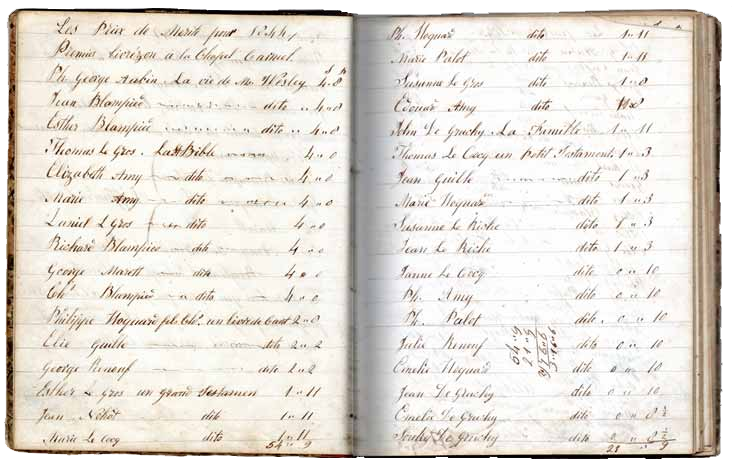 Les Prix de Merit pour 1844
Premier Livrizon a la Chapel Carmel
Ph. George Aubin La vie de Mr. Wesley 4 " 8
Jean Blampied dito " 4 " 0
Esther Blampied dito " 4 " 0
Thomas Le Gros La Ste Bible 4 " 0
Elizabeth Amy dito 4 " 0
Marie Amy dito 4 " 0
Daniel L Gros dito 4 " 0
Richard Blampied dito 4 " 0
George Marett dito 4 " 0
Chs. Blampied dito 4 " 0
Philippe Noquard fils Chs. un Livre de Cant 2 " 8
Elie Guille dito 2 " 2
George Renouf dito 2 " 2
Esther Le Gros un Grand Testament 1 " 11
Jean dito 1 " 11
Marie Le Cocq dito 1 " 11
54 " 9
Ph. Noquard dito 1 " 11
Marie Palot dito 1 " 11
Susanne Le Gros dito 1 " 8
Edouard Amy dito
John Le Gruchy La Famille 1 " 11
Thomas Le Cocq un Petit Testament 1 " 3
Jean Guille dito 1 " 3
Marie Noquard dito 1 " 3
Susanne Le Riche dito 1 " 3
Jean Le Riche dito 1 " 3
Janne Le Cocq dito 0 " 10
Ph. Amy dito 0 " 10
Ph. Palot dito 0 " 10
Julie Renouf dito 0 " 10
Emelie Noquard dito 0 " 10
Jean Le Gruchy dito 0 " 10
Emelie Le Gruchy dito 0 " 8 ½
Le Gruchy dito 0 " 8 ½
21 " 9
54 " 9
21 " 9